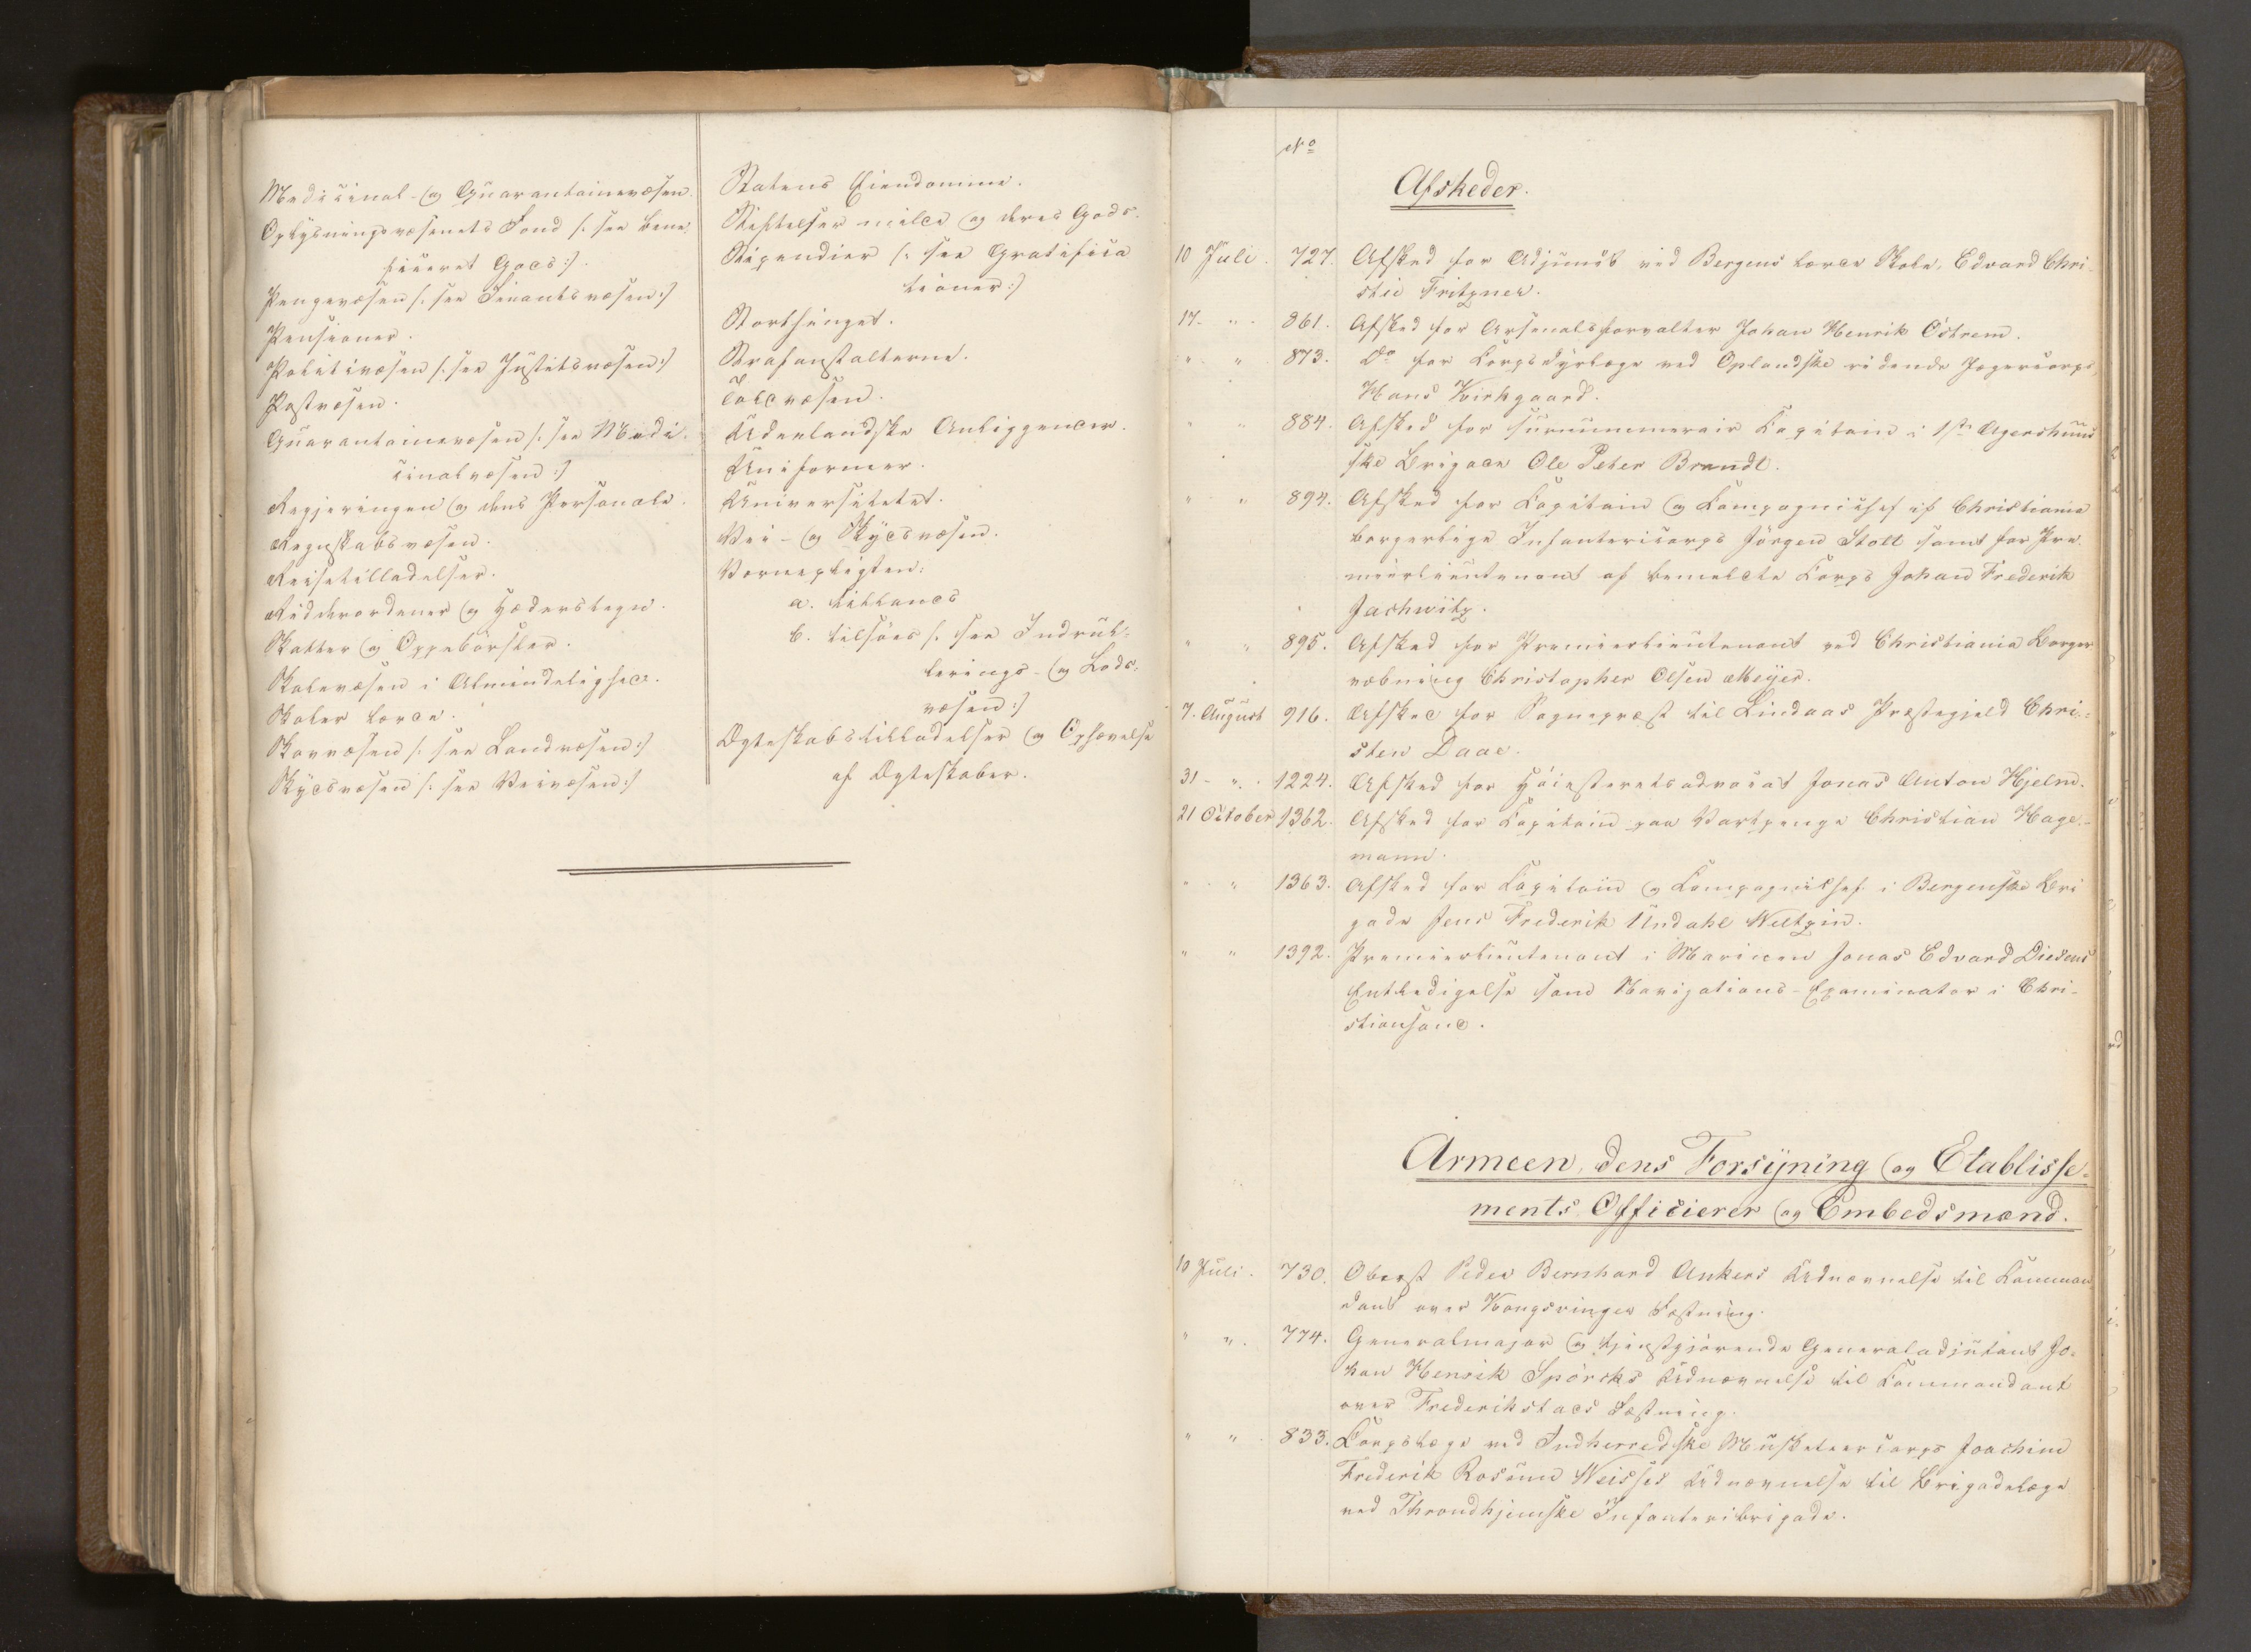 Medicinal- og Quarantainevæsen.
Oplysningsvæsenets Fond /: see bene-
ficeret Gods :/.
Pengevæsen /: see Finantsvæsen :/
Pensioner.
Politivæsen /: see Justitsvæsen :/
Postvæsen.
Quarantainevæsen /: see Medi-
cinalvæsen :/
Regjeringen og dens Personale.
Regnskabsvæsen.
Reisetilladelser.
Ridderordener og Hæderstegn.
Skatter og Oppebörsler.
Skolevæsen i Almindelighed.
Skoler lærde.
Skovvæsen /: see Landvæsen :/
Skydsvæsen /: see Veivæsen :/
Statens Eiendomme.
Stiftelser milde og deres Gods.
Stipendier /: see Gratifica
tioner :/
Storthinget.
Strafanstalterne.
Toldvæsen.
Udenlandske Anliggender.
Uniformer.
Universitetet.
Vei- og Skydsvæsen.
Værnepligten:
a. tillands
b. tilsöes /: see Indrul-
lerings- og Lods-
væsen :/
Ægteskabstilladelser og Ophævelse
af Ægteskaber.
No
Afskeder.
10 Juli. 727. Afsked for Adjunct ved Bergens lærde Skole, Edvard Chri-
stie Fritzner.
17. " . 861. Afsked for Arsenalsforvalter Johan Henrik Östrem.
" " 873. Do for Corpsdyrlæge ved Oplandske ridende Jægercorps,
Hans Kirkgaard.
" " 884. Afsked for surnummerair Capitain i 1ste Agershuus
ske Brigade Ole Peter Brandt.
" " 894. Afsked for Capitain og Compagnichef if Christiania
borgerlige Infantericorps Jörgen Stolt samt for Pre-
mierlieutenant af bemeldte Corps Johan Frederik
Jaschwitz.
" " 895. Afsked for Premierlieutenant ved Christiania Borger
væbning Christopher Olsen Meyer.
7. August 916. Afsked for Sognepræst til Lindaas Præstegjeld Chri-
sten Daae.
31 - " . 1224. Afsked for Höiesteretsadvocat Jonas Anton Hjelm.
21 October 1362. Afsked for Capitain paa Vartpenge Christian Hage-
mann.
" " 1363. Afsked for Capitain og Compagnichef i Bergenske Bri
gade Jens Frederik Undahl Weltzin.
" " 1392. Premierlieutenant i Marinen Jonas Edvard Diesens
Entledigelse som Navigations-Examinator i Chri-
stiansand.
Armeen, dens Forsyning og Etablisse-
ments Officierer og Embedsmænd.
10 Juli. 730. Oberst Peder Bernhard Ankers Udnævnelse til Comman
dant over Kongsvinger Fæstning.
" " . 774. Generalmajor og tjenstgjörende Generaladjutant Jo-
han Henrik Spörcks Udnævnelse til Commandant
over Frederikstads Fæstning.
" " 833. Corpslæge ved Indherredske Musketeercorps Joachim
Frederik Rosinus Weisses Udnævnelse til Brigadelæge
ved Throndhjemske Infanteribrigade.